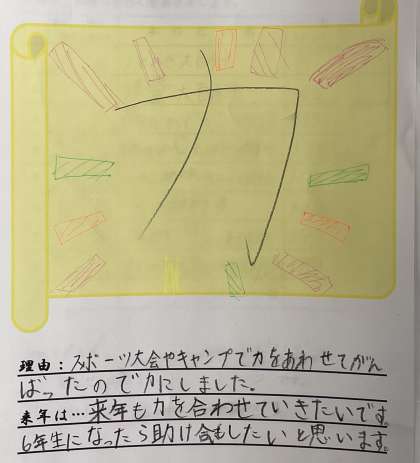 力
理由：スポーツ大会やキャンプで力をあわせてがん
ばったので力にしました。
来年は…来年も力を合わせていきたいです。
6年生になったら助け合もしたいと思います。